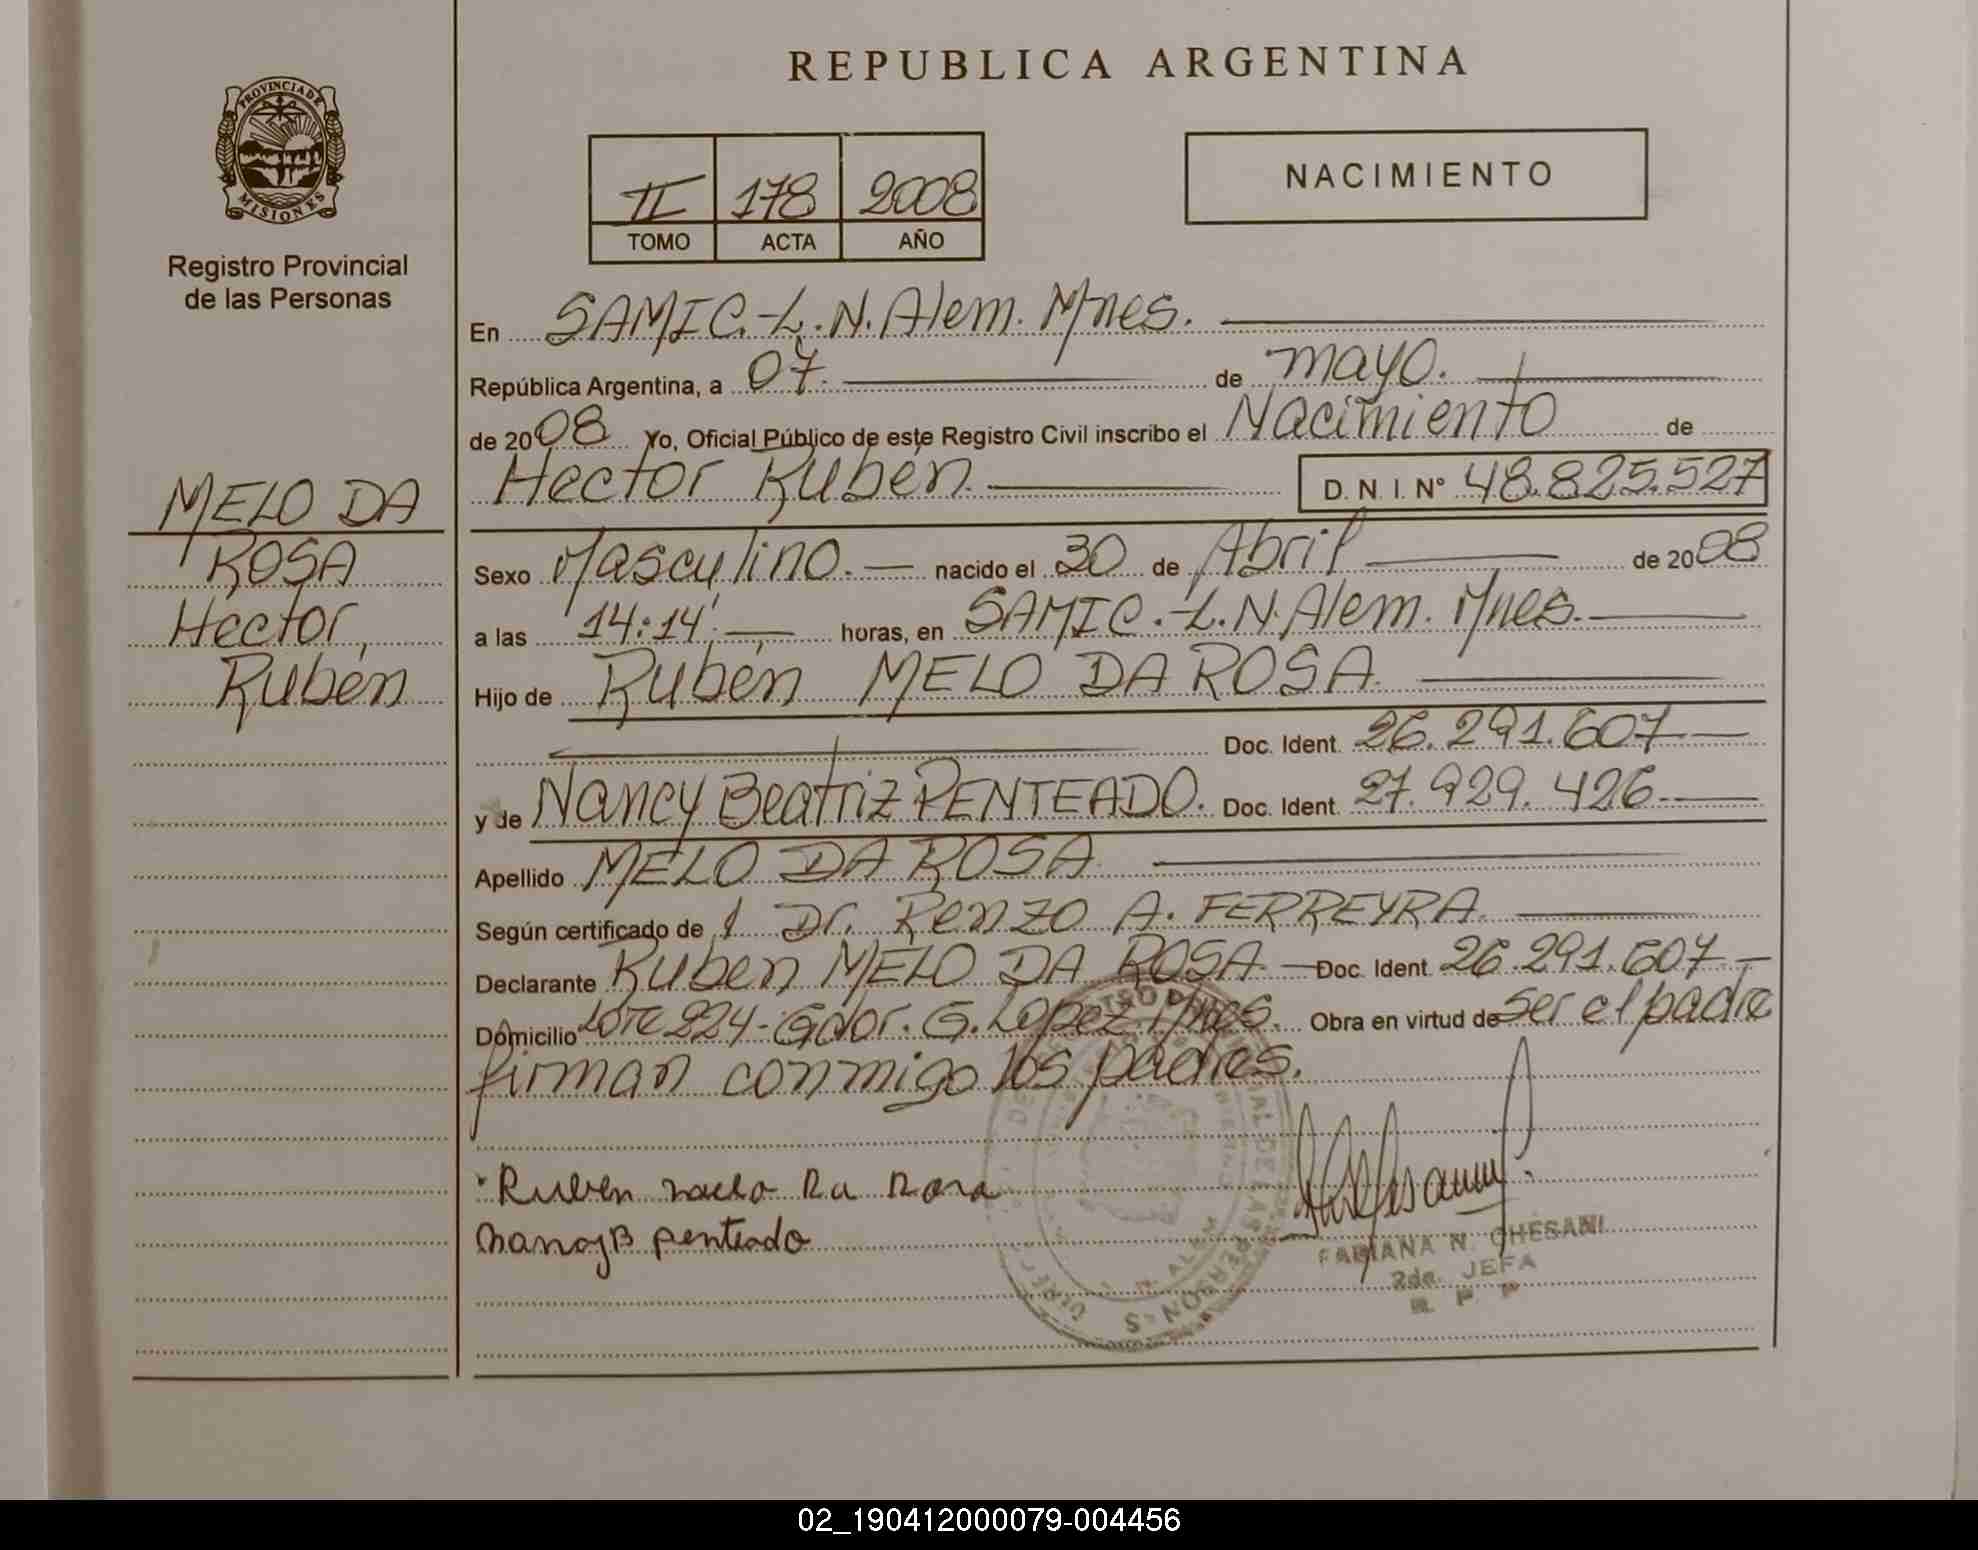 REPUBLICA ARGENTINA
PROVINCIA DE
MISIONES
Registro Provincial
de las Personas
II 178 2008
TOMO ACTA AÑO
NACIMIENTO
MELO DA
ROSA
Hector
Rubén
En SAMIC.-L.N.Alem. Mnes.
República Argentina, a 07. de mayo.
de 2008 Yo, Oficial Público de este Registro Civil inscribo el Nacimiento de
Hector Rubén. D. N. I. Nº 48.825.527
Sexo Masculino. nacido el 30 de Abril de 2008
a las 14:14' horas, en SAMIC.-L.N.Alem. Mnes.
Hijo de Rubén MELO DA ROSA.
Doc. Ident. 26.291.607
y de Nancy Beatriz PENTEADO. Doc. Ident. 27.929.426.
Apellido MELO DA ROSA.
Según certificado de Dr. Renzo A. FERREYRA.
Declarante Ruben MELO DA ROSA. Doc. Ident. 26.291.607
Domicilio Lote 224-Gdor. G. Lopez. Mnes. Obra en virtud de ser el padre
firman conmigo los padres.
Ruben melo Da Rosa
Nancy B penteado
FABIANA N. GHESANI
2da. JEFA
R. P. P.
02_190412000079-004456